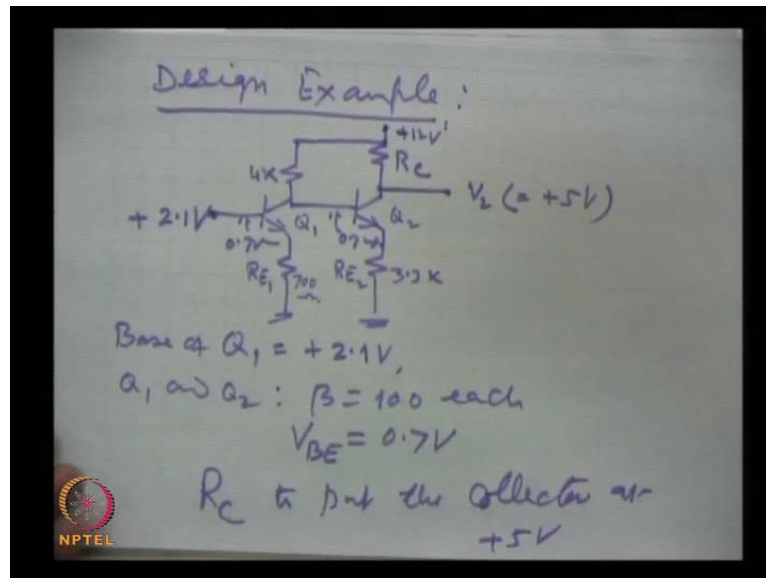 Design Example:
+12V
4K
RC
V2 (= +5V)
+ 2.1V
Q1
Q2
0.7V
0.7V
RE1
700
Ω
RE2
3.3K
Base of Q1 = + 2.1V,
Q1 and Q2 : β = 100 each
VBE = 0.7V
RC to put the collector at
+5V
NPTEL